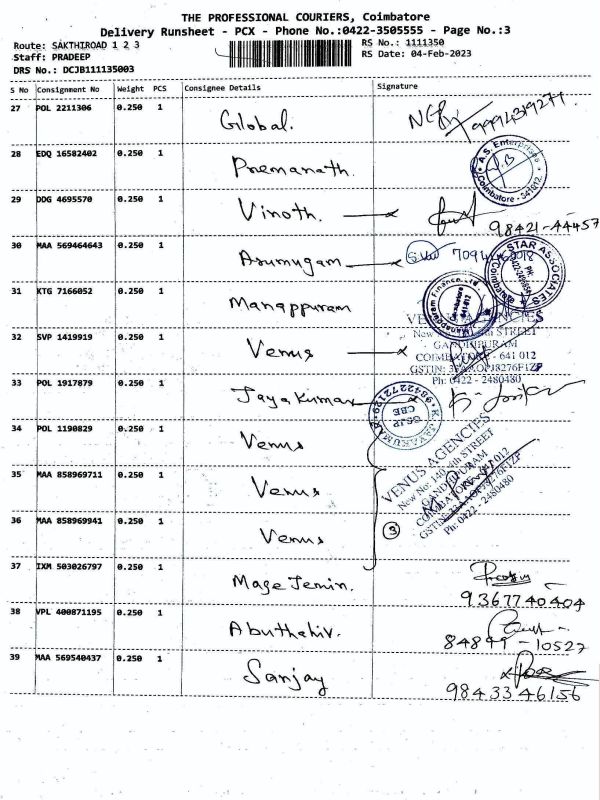 THE PROFESSIONAL COURIERS, Coimbatore
Delivery Runsheet - PCX - Phone No.:0422-3505555 - Page No.:3
Route: SAKTHIROAD 1 2 3
RS No.: 1111350
Staff: PRADEEP
RS Date: 04-Feb-2023
DRS No.: DCJB111135003
S No Consignment No Weight PCS Consignee Details Signature
27 POL 2211306 0.250 1 Global. 9994319277.
28 EDQ 16582402 0.250 1 Premanath.
A.S. Enterprises Coimbatore - 641012
29 DDG 4695570 0.250 1 Vinoth.
98421-44457
30 MAA 569464643 0.250 1 Arumugam
STAR ASSOCIATES Coimbatore
31 KTG 7166052 0.250 1 Manappuram
Manappuram Finance Ltd. Coimbatore
VENUS AGENCIES
32 SVP 1419919 0.250 1 Venus
GANDHIPURAM
COIMBATORE - 641 012
Ph: 0422 - 2480480
33 POL 1917879 0.250 1 Jayakumar
K. JAYAKUMAR 9842272129 CBE
34 POL 1190829 0.250 1 Venus
VENUS AGENCIES
New No: 140, 4th STREET
GANDHIPURAM
35 MAA 858969711 0.250 1 Venus
Ph: 0422 - 2480480
36 MAA 858969941 0.250 1 Venus
3
37 IXM 503026797 0.250 1 Mage Jemin.
9367740404
38 VPL 400871195 0.250 1 Abuthahiv.
84899-10527
39 MAA 569540437 0.250 1 Sanjay
9843346156